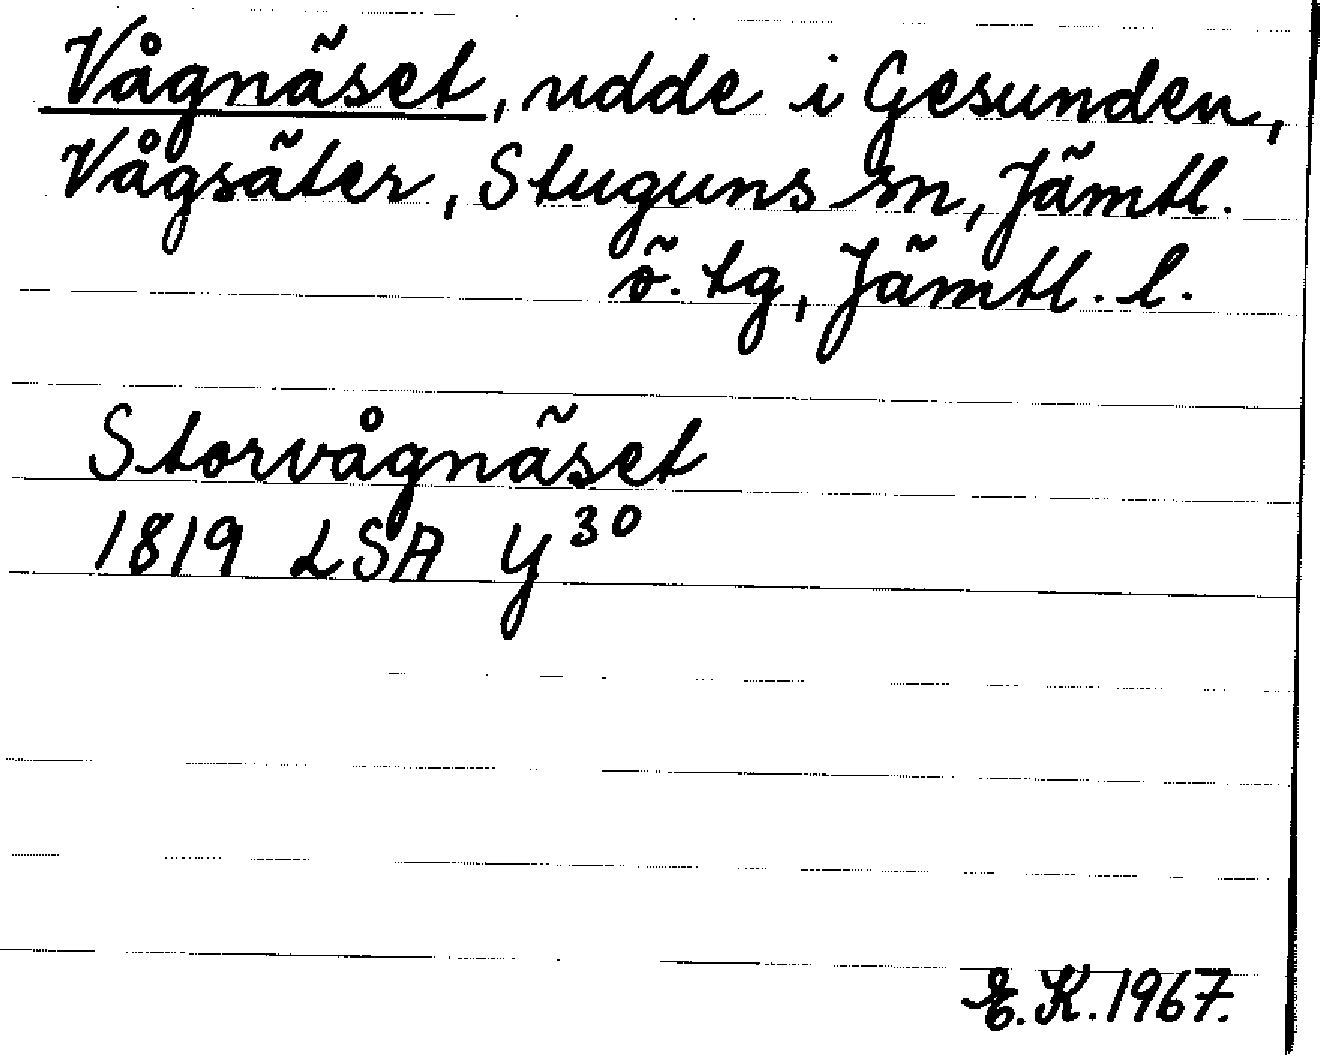 Vågnäset, udde i Gesunden,
Vågsäter, Stuguns sn, Jämtl.
ö. tg, Jämtl. l.
Storvågnäset
1819 LSA Y 30
E.K. 1967.